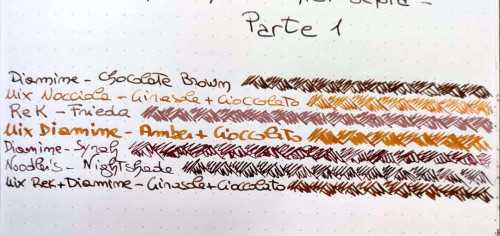 Parte 1
Diamine - Chocolate Brown
Mix Nocciola - Girasole + Cioccolato
R&K - Frieda
Mix Diamine - Amber + Cioccolato
Diamine - Syrah
Noodler's - Nightshade
Mix R&K + Diamine - Girasole + Cioccolato